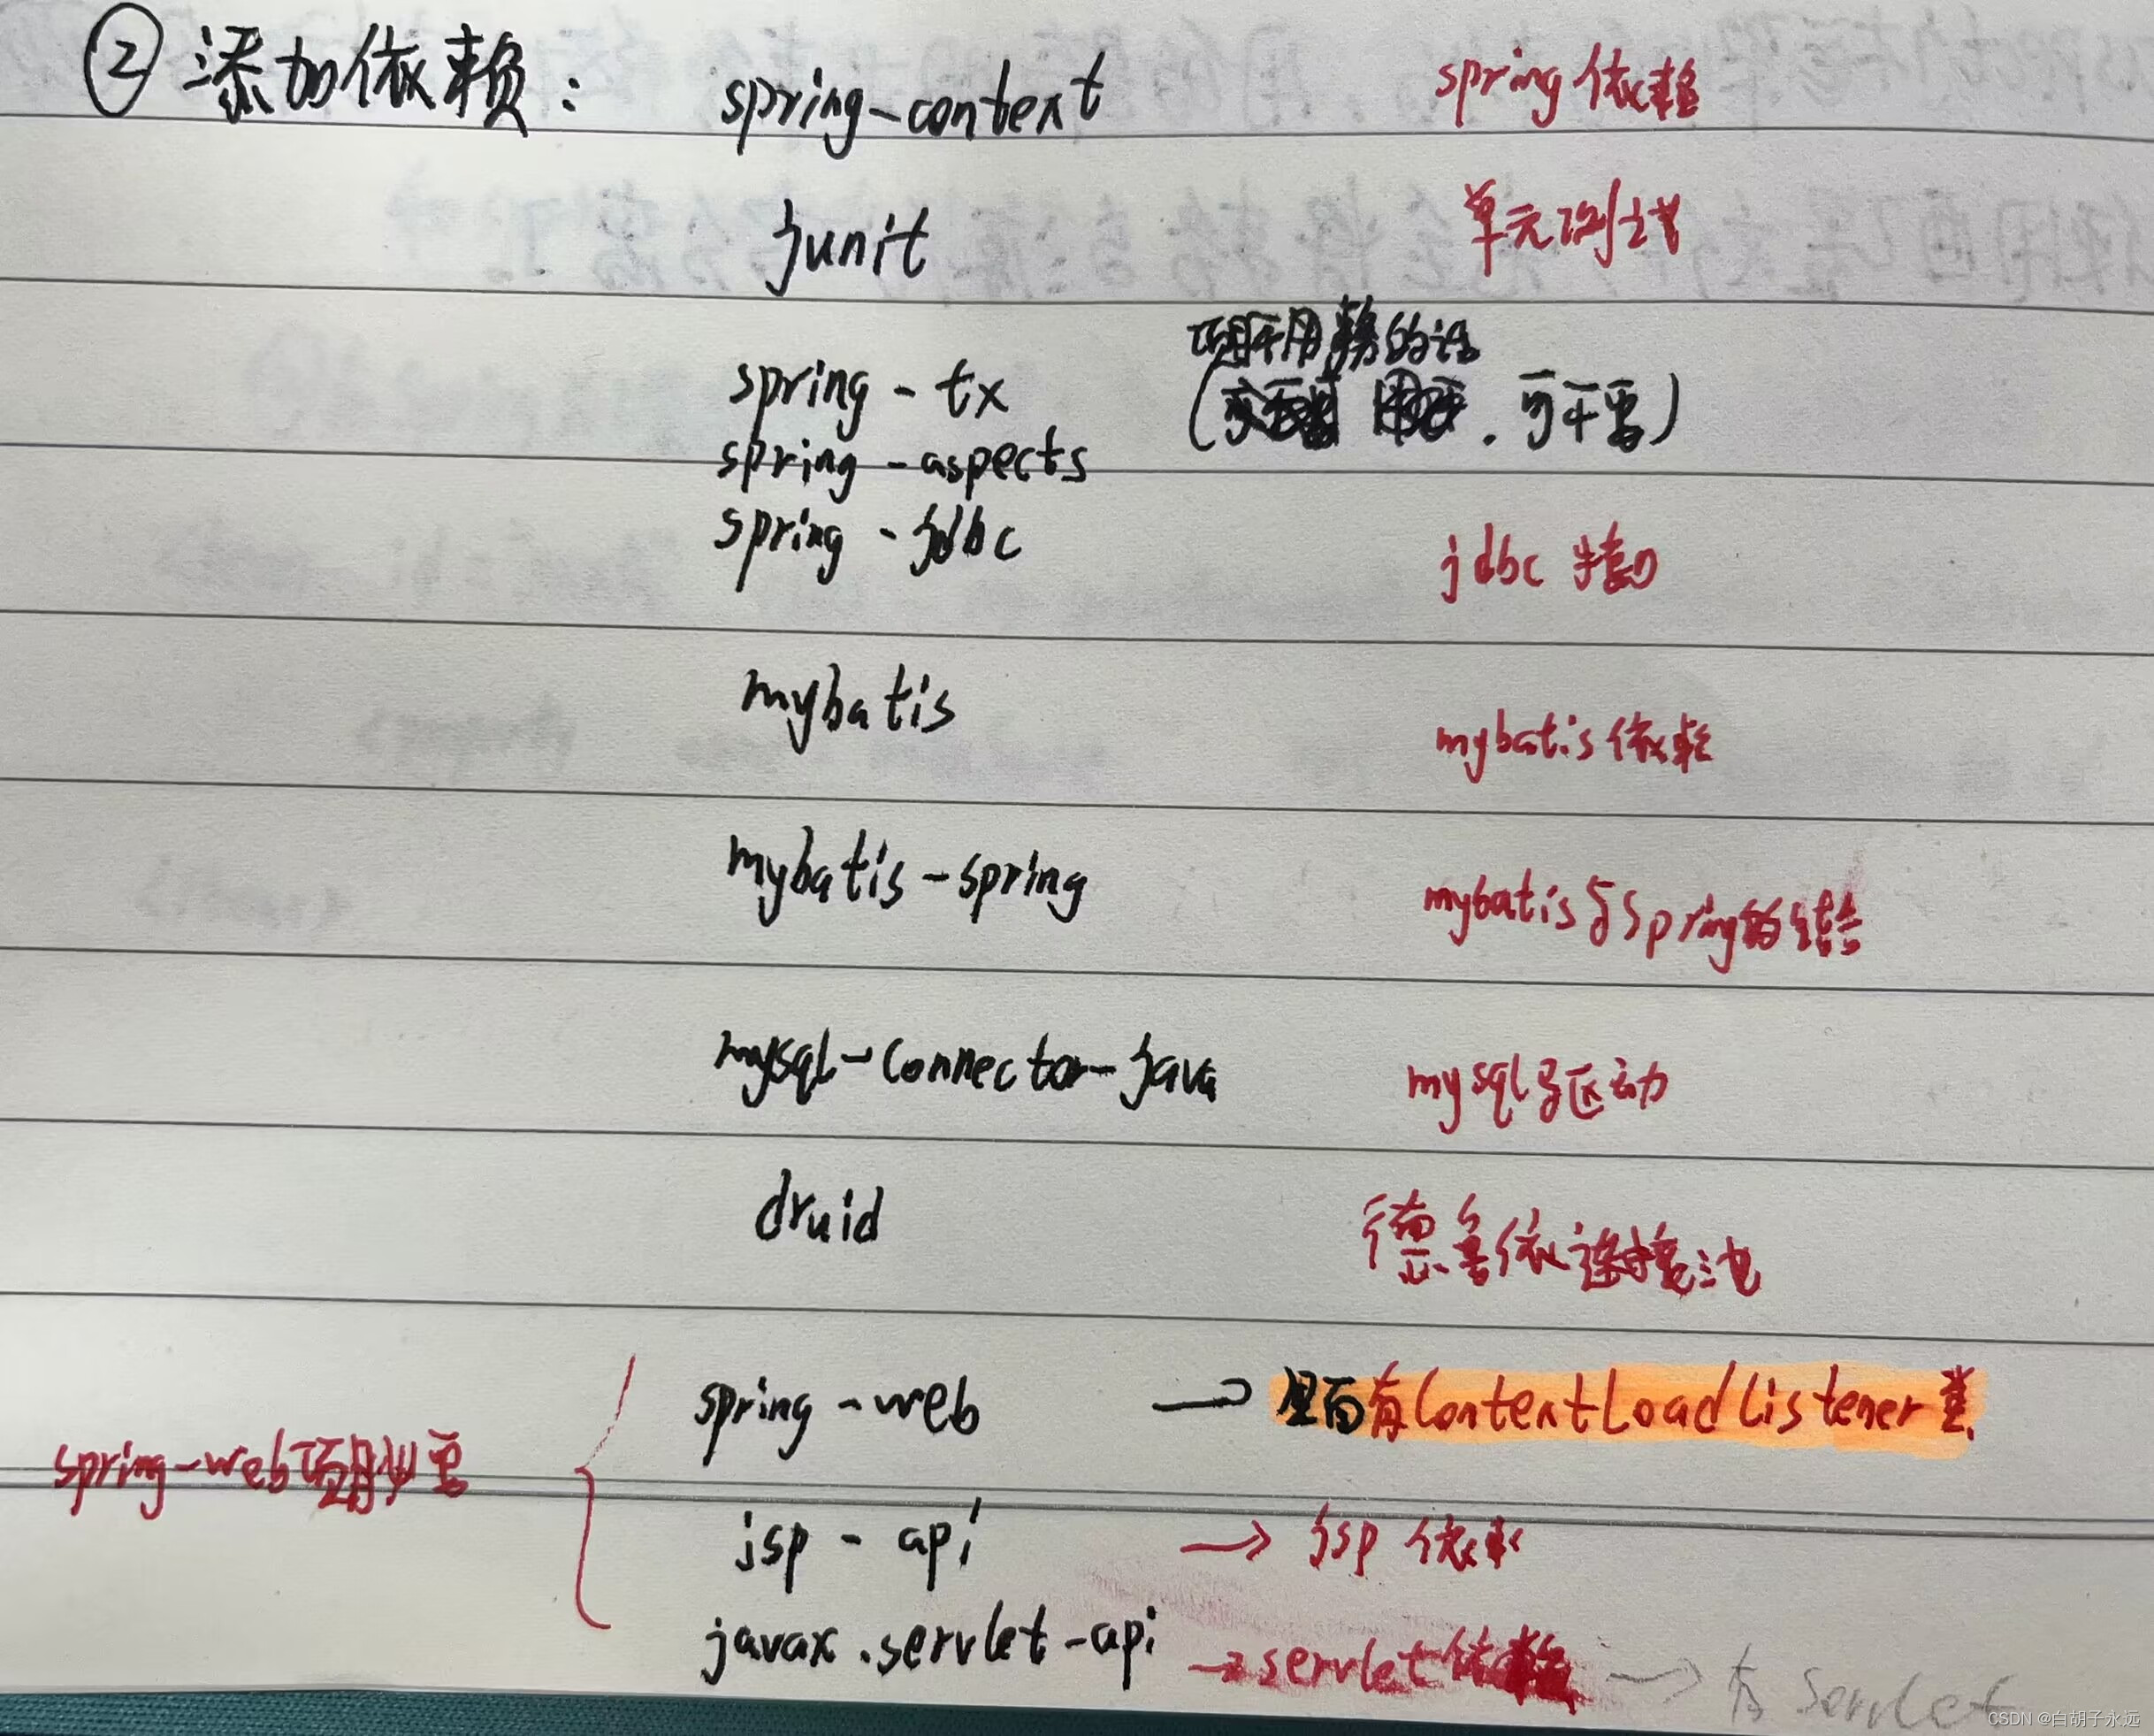 ② 添加依赖： spring-context spring依赖
junit 单元测试
项目不用事务的话
spring-tx （ ，可不要）
spring-aspects
spring-jdbc jdbc接口
mybatis mybatis依赖
mybatis-spring mybatis与spring的结合
mysql-connector-java mysql驱动
druid 德鲁依连接池
spring-web → 里面有ContextLoadListener类
spring-web项目必要
jsp-api → jsp依赖
javax.servlet-api → servlet依赖 → 有Servlet
CSDN @白胡子永远